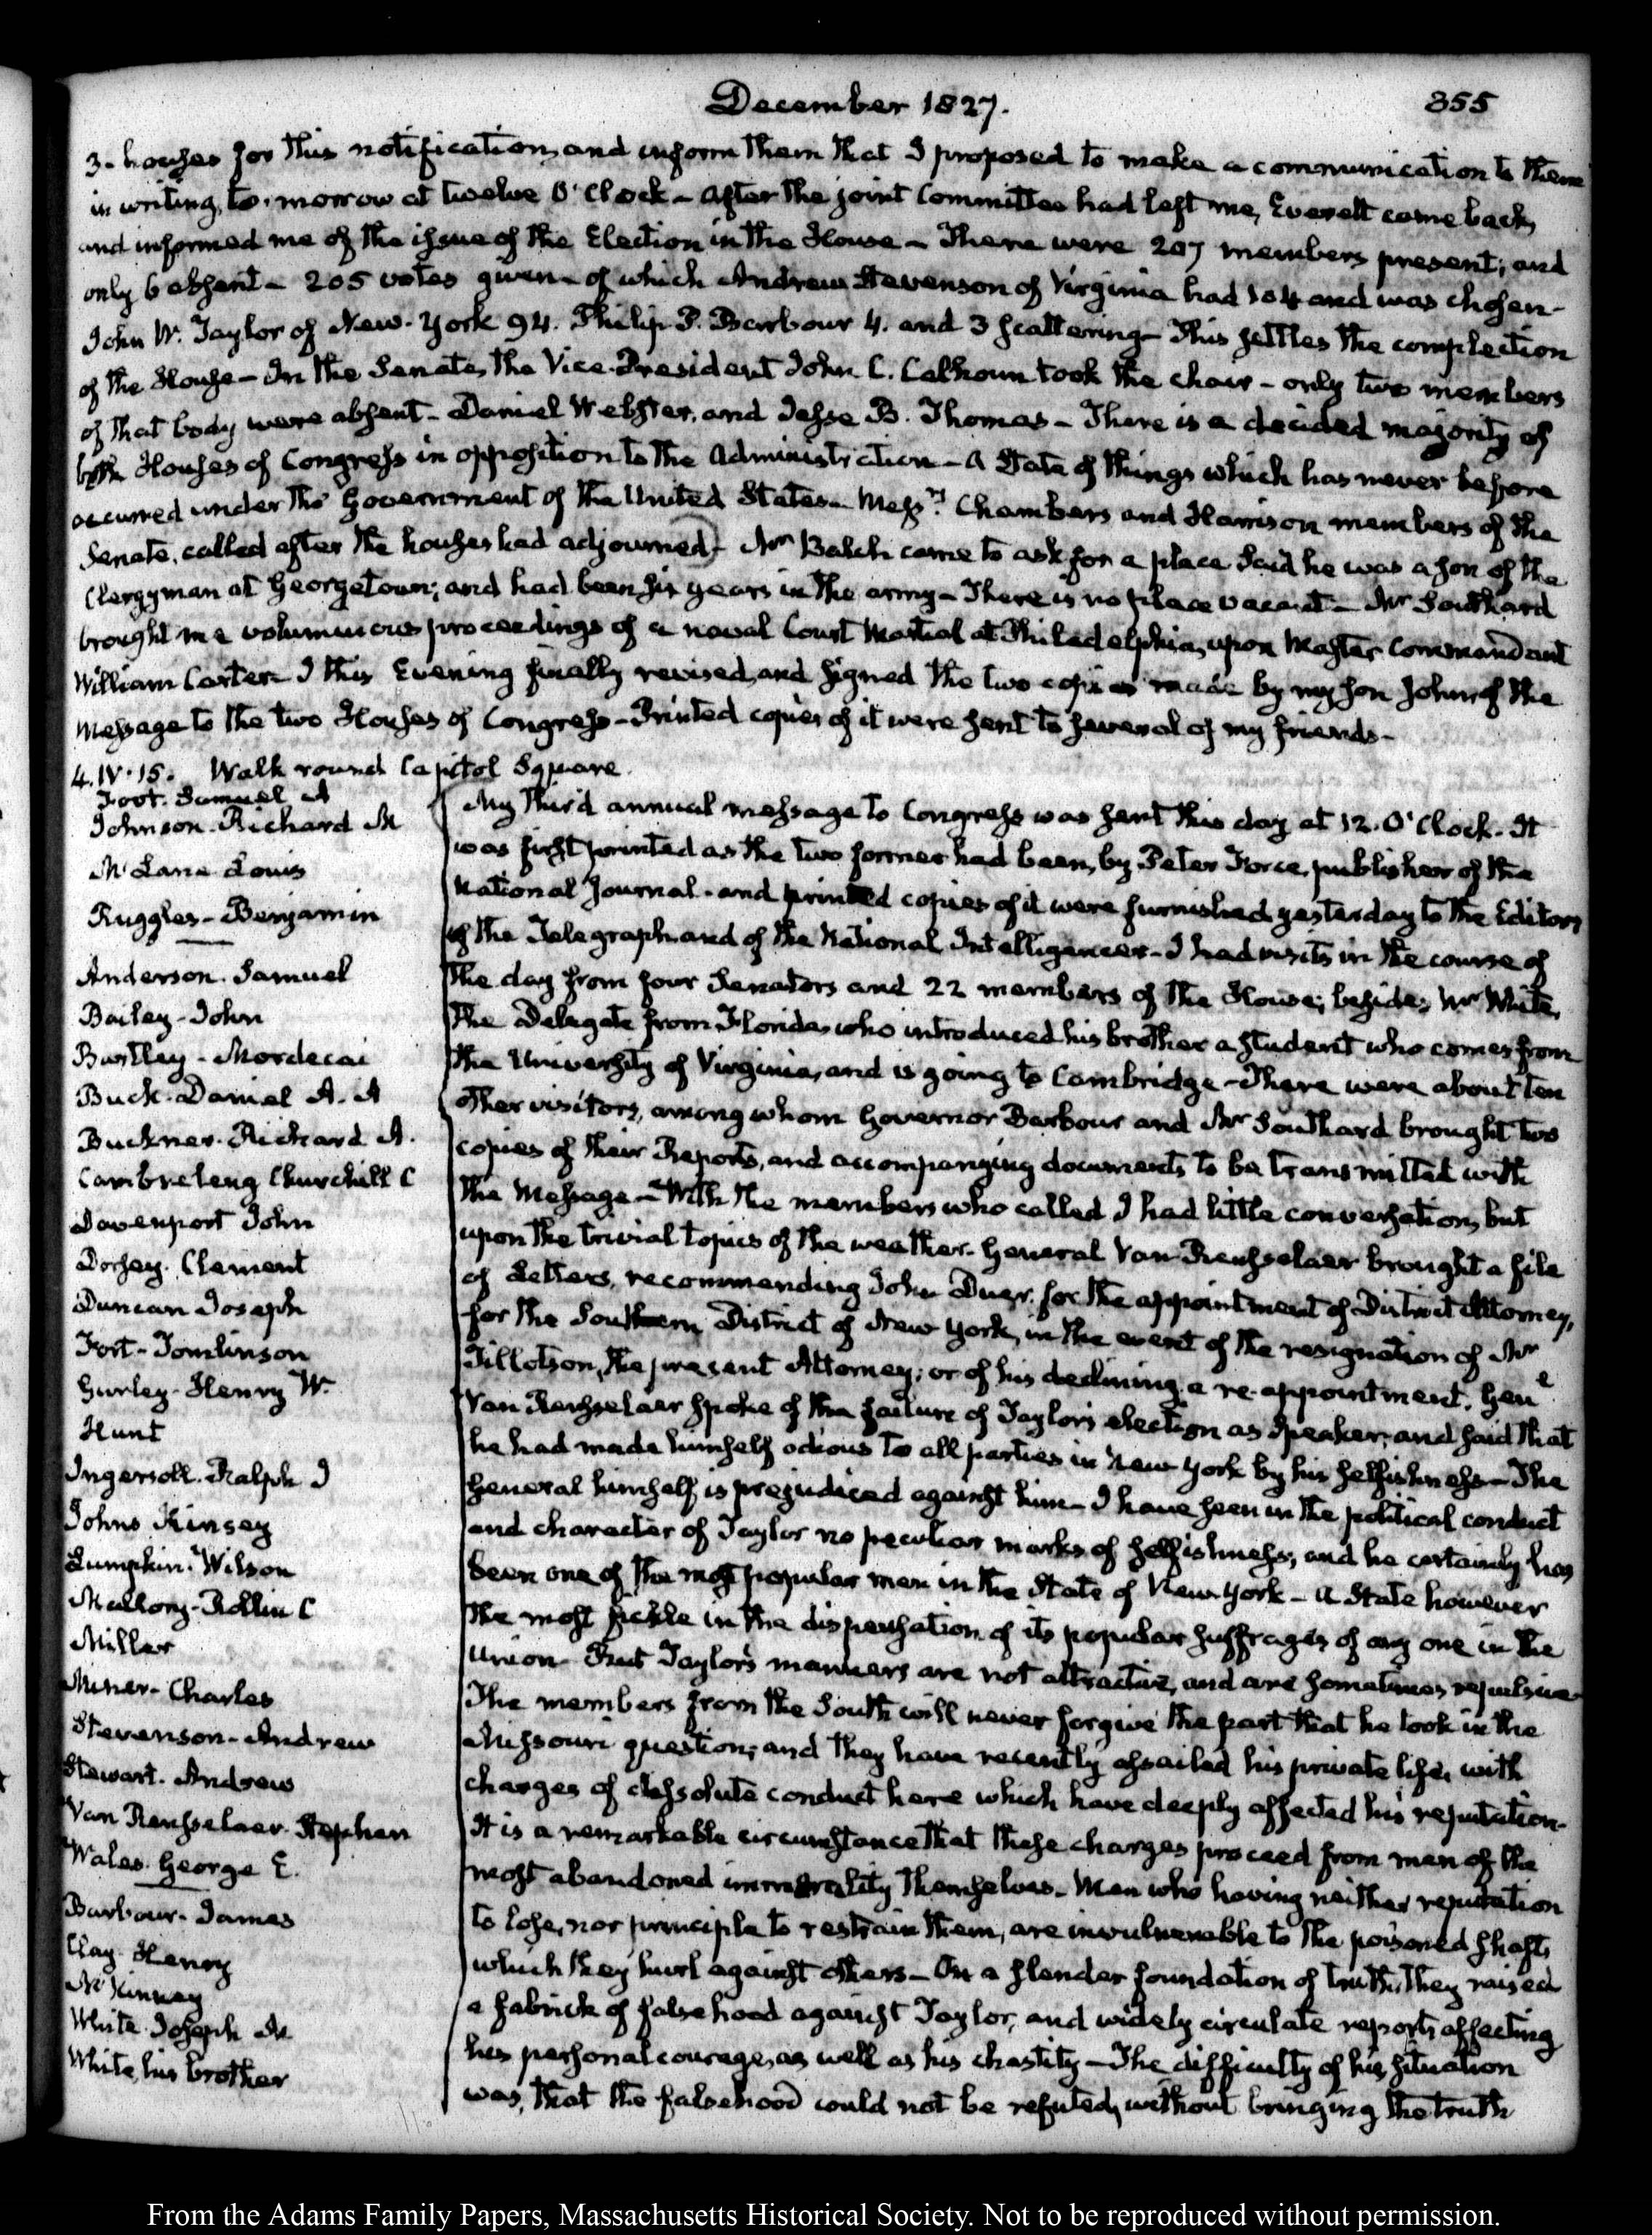 December 1827.
355
3. houses for this notification, and inform them that I proposed to make a communication to them
in writing, to-morrow at twelve O'Clock - After the joint Committee had left me, Everett came back,
and informed me of the issue of the Election in the House - There were 207 members present; and
only 6 absent - 205 votes given - of which Andrew Stevenson of Virginia had 104 and was chosen -
John W. Taylor of New-York 94. Philip P. Barbour 4. and 3 scattering - This settles the complection
of the House - In the Senate, the Vice-President John C. Calhoun took the chair - only two members
of that body were absent - Daniel Webster, and Jesse B. Thomas - There is a decided majority of
both Houses of Congress in opposition to the Administration - A State of things which has never before
occurred under the Government of the United States - Messrs. Chambers and Harrison members of the
Senate, called after the houses had adjourned - Mr Balch came to ask for a place said he was a son of the
Clergyman at Georgetown; and had been six years in the army - There is no place vacant - Mr Southard
brought me voluminous proceedings of a naval Court Martial at Philadelphia, upon Master Commandant
William Carter - I this Evening finally revised, and signed the two copies made by my son John, of the
Message to the two Houses of Congress - Printed copies of it were sent to several of my friends -
4. IV. 15. Walk round Capitol Square.
Foot. Samuel A
Johnson. Richard M
McLane Louis
Ruggles - Benjamin
Anderson. Samuel
Bailey - John
Bartley - Mordecai
Buck. Daniel A. A
Buckner. Richard A.
Cambreleng Churchill C
Davenport John
Dorsey. Clement
Duncan Joseph
Fort - Tomlinson
Gurley - Henry W.
Hunt
Ingersoll. Ralph I
Johns Kinsey
Lumpkin. Wilson
Mallary - Rollin C
Miller
Miner - Charles
Stevenson - Andrew
Stewart. Andrew
Van Rensselaer. Stephen
Wales. George E.
Barbour - James
Clay. Henry
McKinney
White. Joseph M
White, his brother
My third annual message to Congress was sent this day at 12. O'Clock. It
was first printed as the two former had been, by Peter Force, publisher of the
National Journal - and printed copies of it were furnished yesterday to the Editors
of the Telegraph and of the National Intelligencer - I had visits in the course of
the day from four Senators and 22 members of the House; besides Mr White,
the Delegate from Florida, who introduced his brother a student who comes from
the University of Virginia, and is going to Cambridge - There were about ten
other visitors, among whom Governor Barbour and Mr Southard brought two
copies of their Reports, and accompanying documents to be transmitted with
the Message - With the members who called I had little conversation, but
upon the trivial topics of the weather. General Van Rensselaer brought a file
of Letters, recommending John Duer for the appointment of District Attorney,
for the Southern District of New York, in the event of the resignation of Mr
Tillotson, the present Attorney; or of his declining a re-appointment. Genl
Van Rensselaer spoke of the failure of Taylor's election as Speaker, and said that
he had made himself odious to all parties in New York by his selfishness - The
General himself is prejudiced against him - I have seen in the political conduct
and character of Taylor no peculiar marks of selfishness, and he certainly has
been one of the most popular men in the State of New-York - a State however
the most fickle in the dispensation of its popular suffrages of any one in the
Union - But Taylor's manners are not attractive, and are sometimes repulsive
The members from the South will never forgive the part that he took in the
Missouri question; and they have recently assailed his private life, with
charges of dissolute conduct here which have deeply affected his reputation.
It is a remarkable circumstance that these charges proceed from men of the
most abandoned immorality themselves - Men who having neither reputation
to lose, nor principle to restrain them, are invulnerable to the poisoned shafts
which they hurl against others - On a slender foundation of truth, they raised
a fabrick of falsehood against Taylor, and widely circulate reports affecting
his personal courage, as well as his chastity - The difficulty of his situation
was, that the falsehood could not be refuted, without bringing the truth
From the Adams Family Papers, Massachusetts Historical Society. Not to be reproduced without permission.